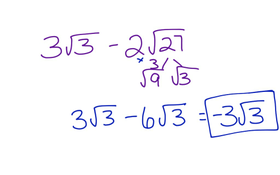 3√3 − 2√27
× 3 /\
√9 √3
3√3 − 6√3 = −3√3